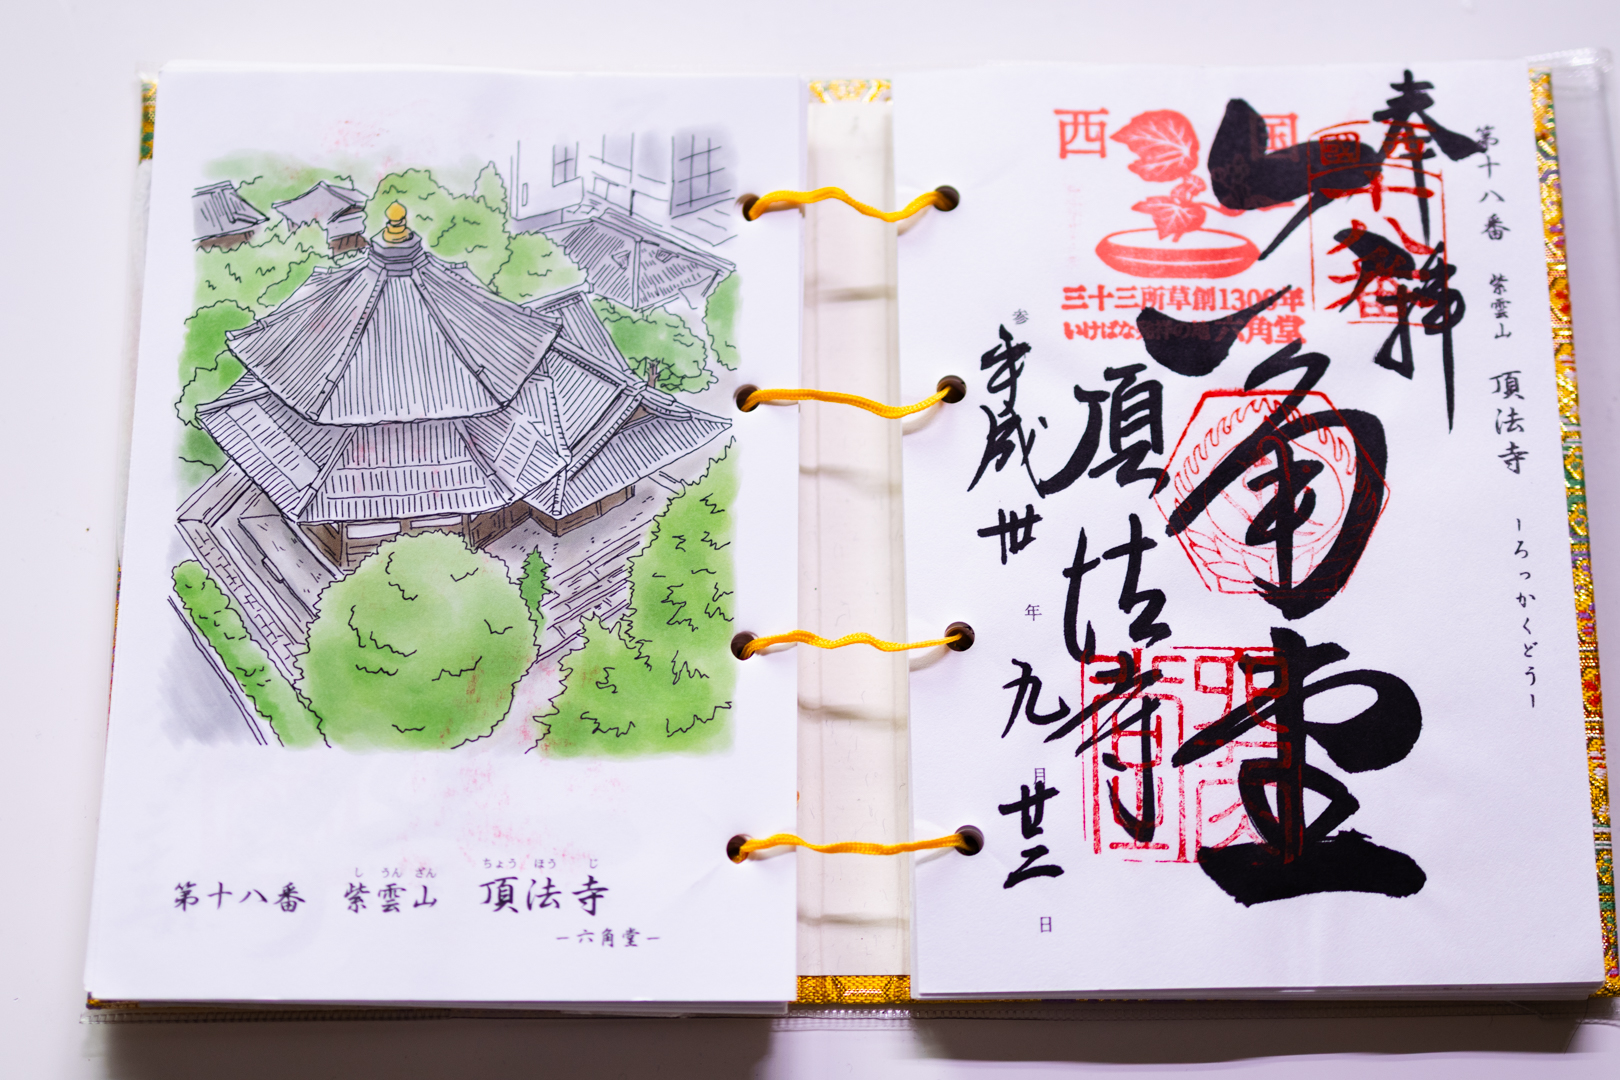 し うん ざん ちょう ほう じ
第十八番 紫雲山 頂法寺
ー六角堂ー
第十八番 紫雲山 頂法寺
ーろっかくどうー
奉拝
六角堂
頂法寺
平成 丗 年 九 月 廿二 日
西国
三十三所草創1300年
六角堂
西國
十八番